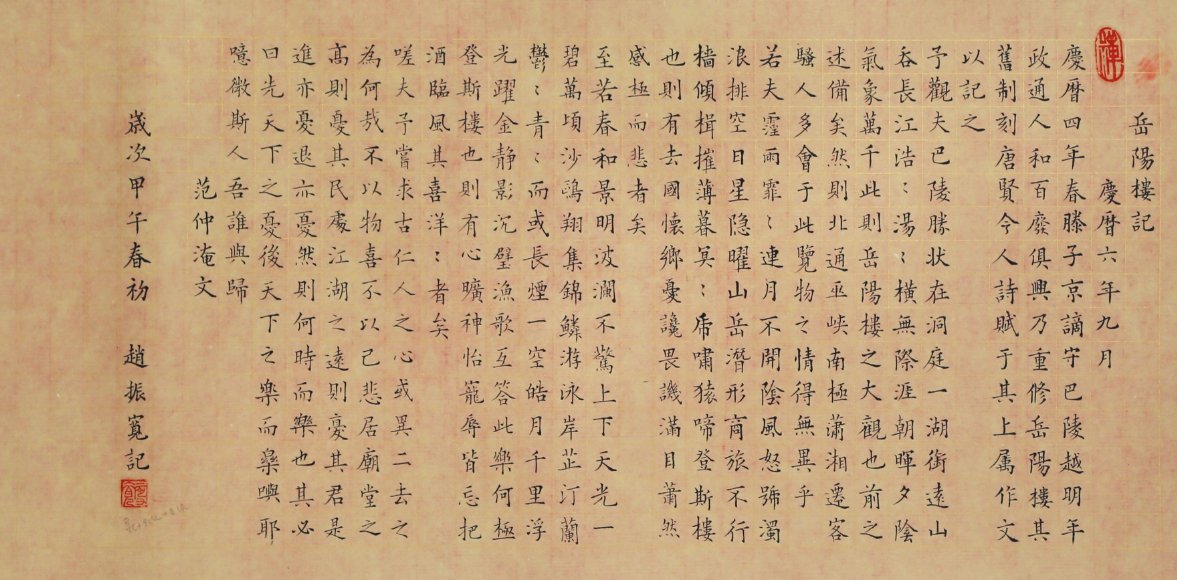 岳陽樓記
慶曆六年九月
慶曆四年春滕子京謫守巴陵越明年
政通人和百廢俱興乃重修岳陽樓其
舊制刻唐賢今人詩賦于其上属作文
以記之
予觀夫巴陵勝状在洞庭一湖銜遠山
吞長江浩〻湯〻橫無際涯朝暉夕陰
氣象萬千此則岳陽樓之大觀也前之
述備矣然則北通巫峽南極瀟湘遷客
騷人多會于此覽物之情得無異乎
若夫霪雨霏〻連月不開陰風怒號濁
浪排空日星隐曜山岳潛形商旅不行
檣傾楫摧薄暮冥〻虎嘯猿啼登斯樓
也則有去國懷鄉憂讒畏譏滿目蕭然
感極而悲者矣
至若春和景明波瀾不驚上下天光一
碧萬頃沙鷗翔集錦鱗游泳岸芷汀蘭
鬱〻青〻而或長煙一空皓月千里浮
光躍金靜影沉璧漁歌互答此樂何極
登斯樓也則有心曠神怡寵辱皆忘把
酒臨風其喜洋〻者矣
嗟夫予嘗求古仁人之心或異二去之
為何哉不以物喜不以己悲居廟堂之
高則憂其民處江湖之遠則憂其君是
進亦憂退亦憂然則何時而樂也其必
曰先天下之憂後天下之樂而樂耶
噫微斯人吾誰與歸
范仲淹文
歲次甲午春初 趙振寬記